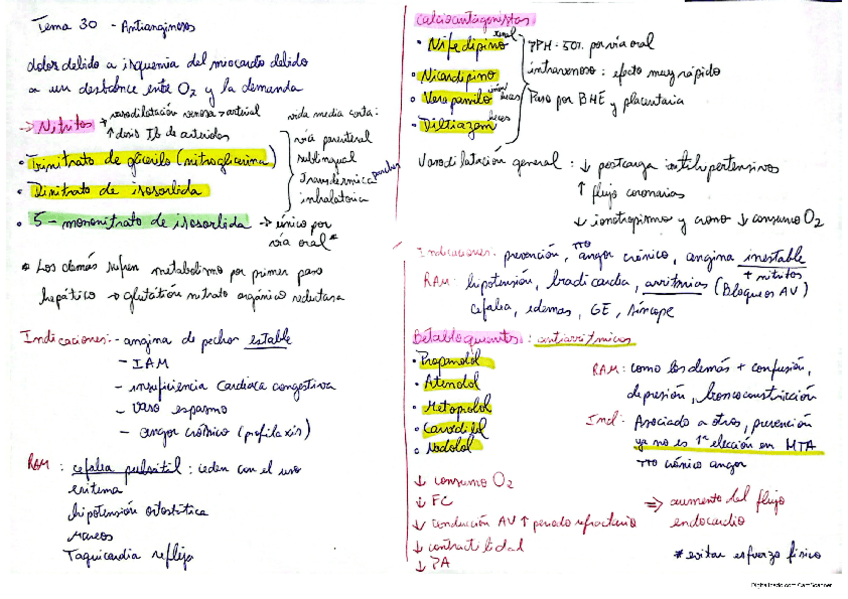 Tema 30 - Antianginosos
dolor debido a isquemia del miocardio debido
a un desbalance entre O2 y la demanda
→ Nitritos → vasodilatación venosa > arterial
↑ dosis Tb de arterias
vida media corta:
• Trinitrato de glicerilo (nitroglicerina)
• Dinitrato de isosorbida
vía parenteral
sublingual
transdérmica parches
inhalatoria
• 5-mononitrato de isosorbida → único por
vía oral *
* Los demás sufren metabolismo por primer paso
hepático → glutatión nitrato orgánico reductasa
Indicaciones: - angina de pecho estable
- IAM
- insuficiencia cardiaca congestiva
- vaso espasmo
- angor crónico (profilaxis)
RAM: cefalea pulsátil: ceden con el uso
eritema
hipotensión ortostática
mareos
Taquicardia refleja
Calcioantagonistas
• Nifedipino
• Nicardipino
• Verapamilo
• Diltiazem
PPH - 50% por vía oral
intravenoso: efecto muy rápido
Paso por BHE y placentaria
Vasodilatación general: ↓ postcarga antihipertensivos
↑ flujo coronarias
↓ ionotropismo y crono ↓ consumo O2
Indicaciones: prevención, tto angor crónico, angina inestable
+ nitritos
RAM: hipotensión, bradicardia, arritmias (Bloqueos AV)
cefalea, edemas, GE, síncope
Betabloqueantes: antiarrítmicos
• Propanolol
• Atenolol
• Metoprolol
• Carvedilol
• Nadolol
RAM: como los demás + confusión,
depresión, broncoconstricción
Ind: Asociado a otros, prevención
ya no es 1ª elección en HTA
tto crónico angor
↓ consumo O2
↓ FC
↓ conducción AV ↑ periodo refractario
↓ contractilidad
↓ PA
⇒ aumento del flujo
endocardio
* evitar esfuerzo físico
Digitalizado con CamScanner